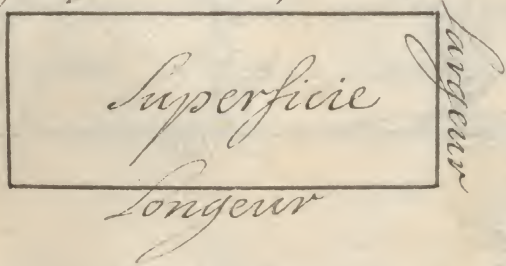 Superficie
Largeur
Longeur